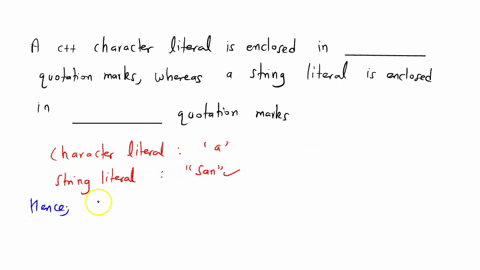 A c++ character literal is enclosed in __________
quotation marks, whereas a string literal is enclosed
in __________ quotation marks
Character literal : 'a'
string literal : "San"
Hence;